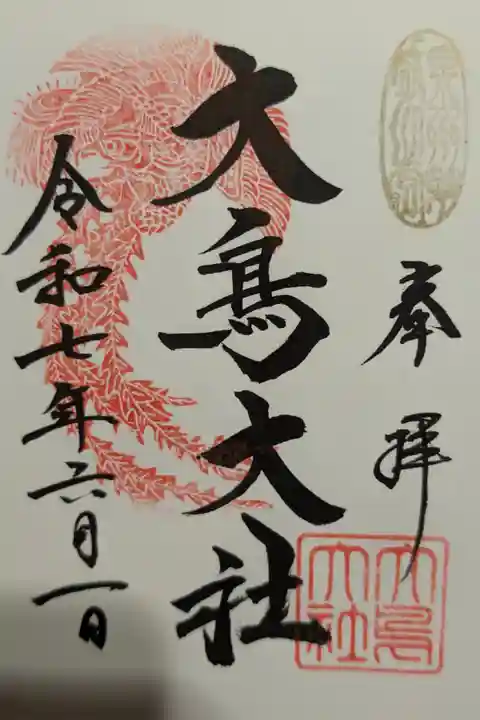 奉拝
大鳥大社
大鳥大社
令和七年六月一日